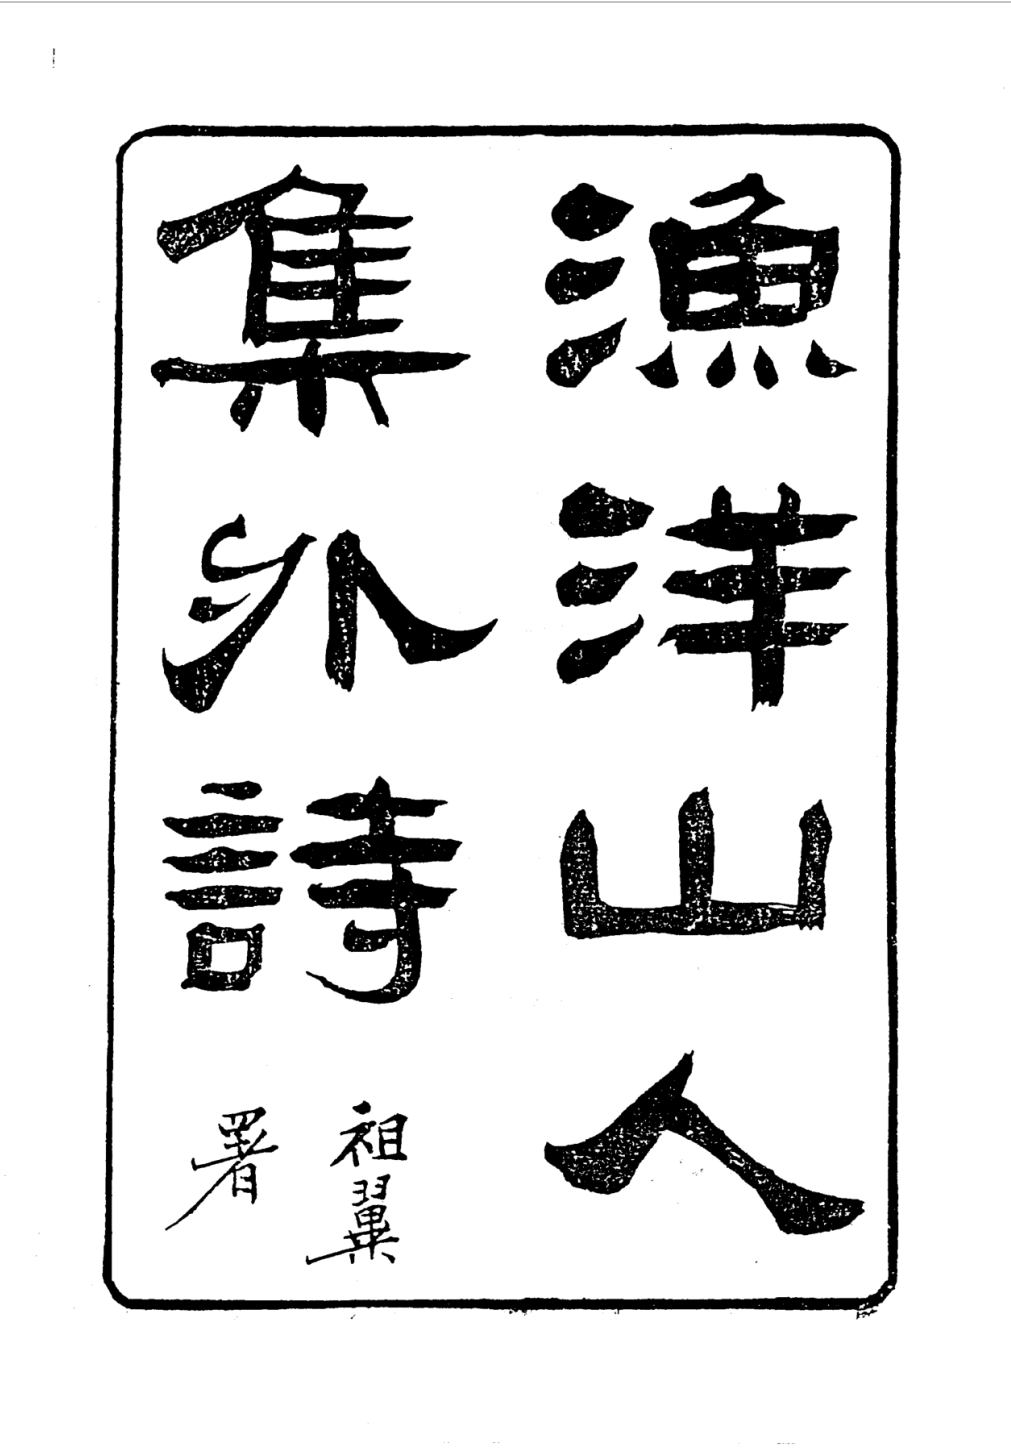 漁洋山人
集外詩
祖翼
署